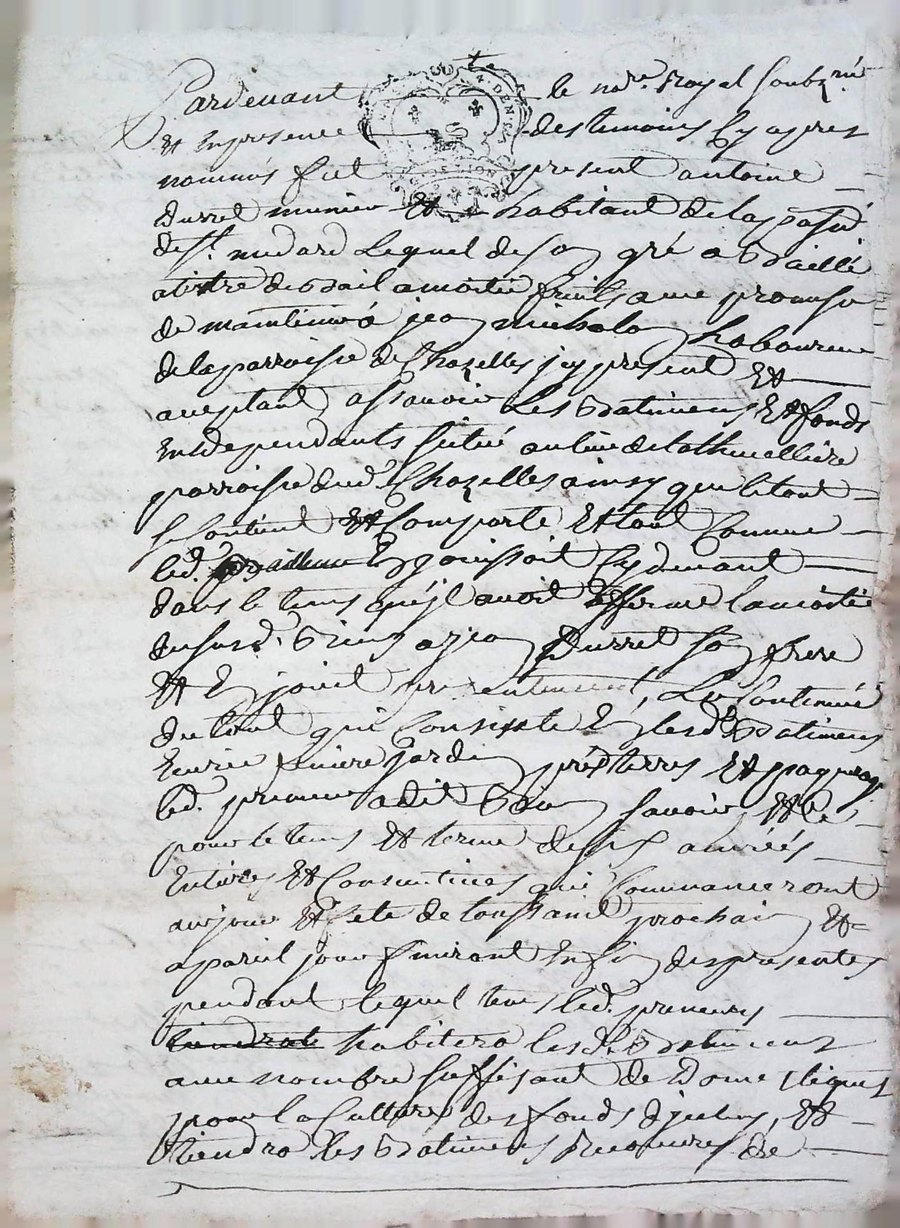 Pardevant le no.re Royal soubz.né
et en presence des temoins cy apres
nommés fut present antoine
Durret munier et habitant de la
de st. medard Lequel de son gré a Baillé
a titre de Bail a moitié fruits avec promesse
de maintenir a jean Laboureur
de la parroisse de Chazelles icy present Et
aceptant assavoir Les Batimens Et fonds
En dependants situé au lieu de
parroisse dud. Chazelles ainsy que le tout
se Contient Et Comporte Et tout Comme
led. Bailleur En jouissoit Cy devant
dans le tems qu'il avoit affermé la moitié
du susd. Bien a jean Durret son frere
Et En jouit presentement, Le Contenue
du tout qui Consiste En lesd. Batimens
Ecurie jardin prés terres Et paquerages
led. preneur a dit Bien savoir, Et Ce
pour le tems Et terme de six années
Entieres Et Consecutives qui Commanceront
au jour Et fete de toussaint prochain Et
a pareil jour finiront En fin des presentes
pendant lequel tems led. preneur
habitera lesd. Batimens
avec nombre suffisant de Domestiques
pour la Culture des fonds d'jceluy, Et
tiendra les Batimens de